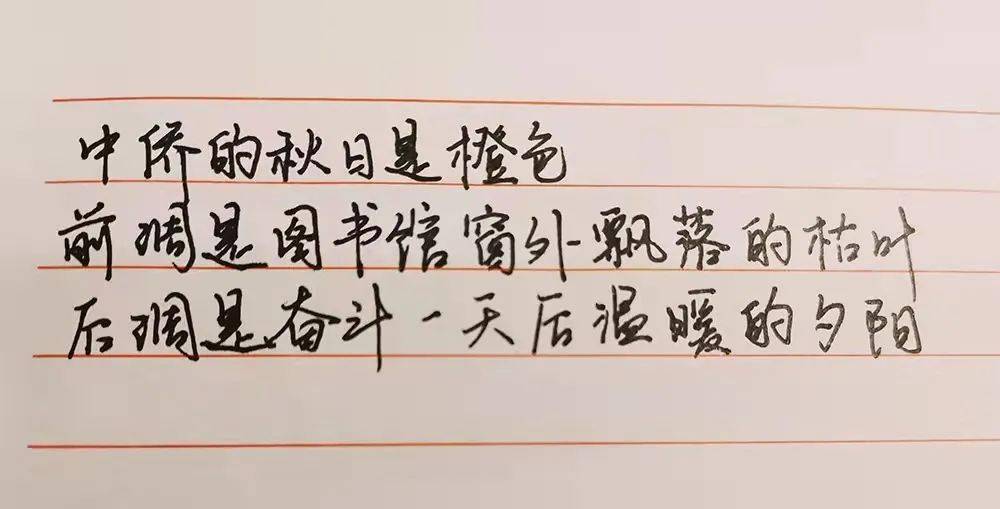 中侨的秋日是橙色
前调是图书馆窗外飘落的枯叶
后调是奋斗一天后温暖的夕阳